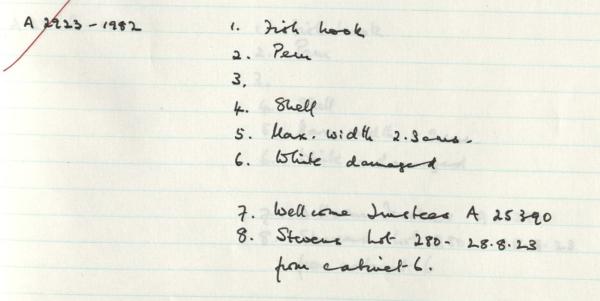 A 2923-1982
1. Fish hook
2. Peru
3.
4. Shell
5. Max. width 2.3cms.
6. White damaged
7. Wellcome Trustees A 25390
8. Stevens Lot 280- 28.8.23
from cabinet 6.